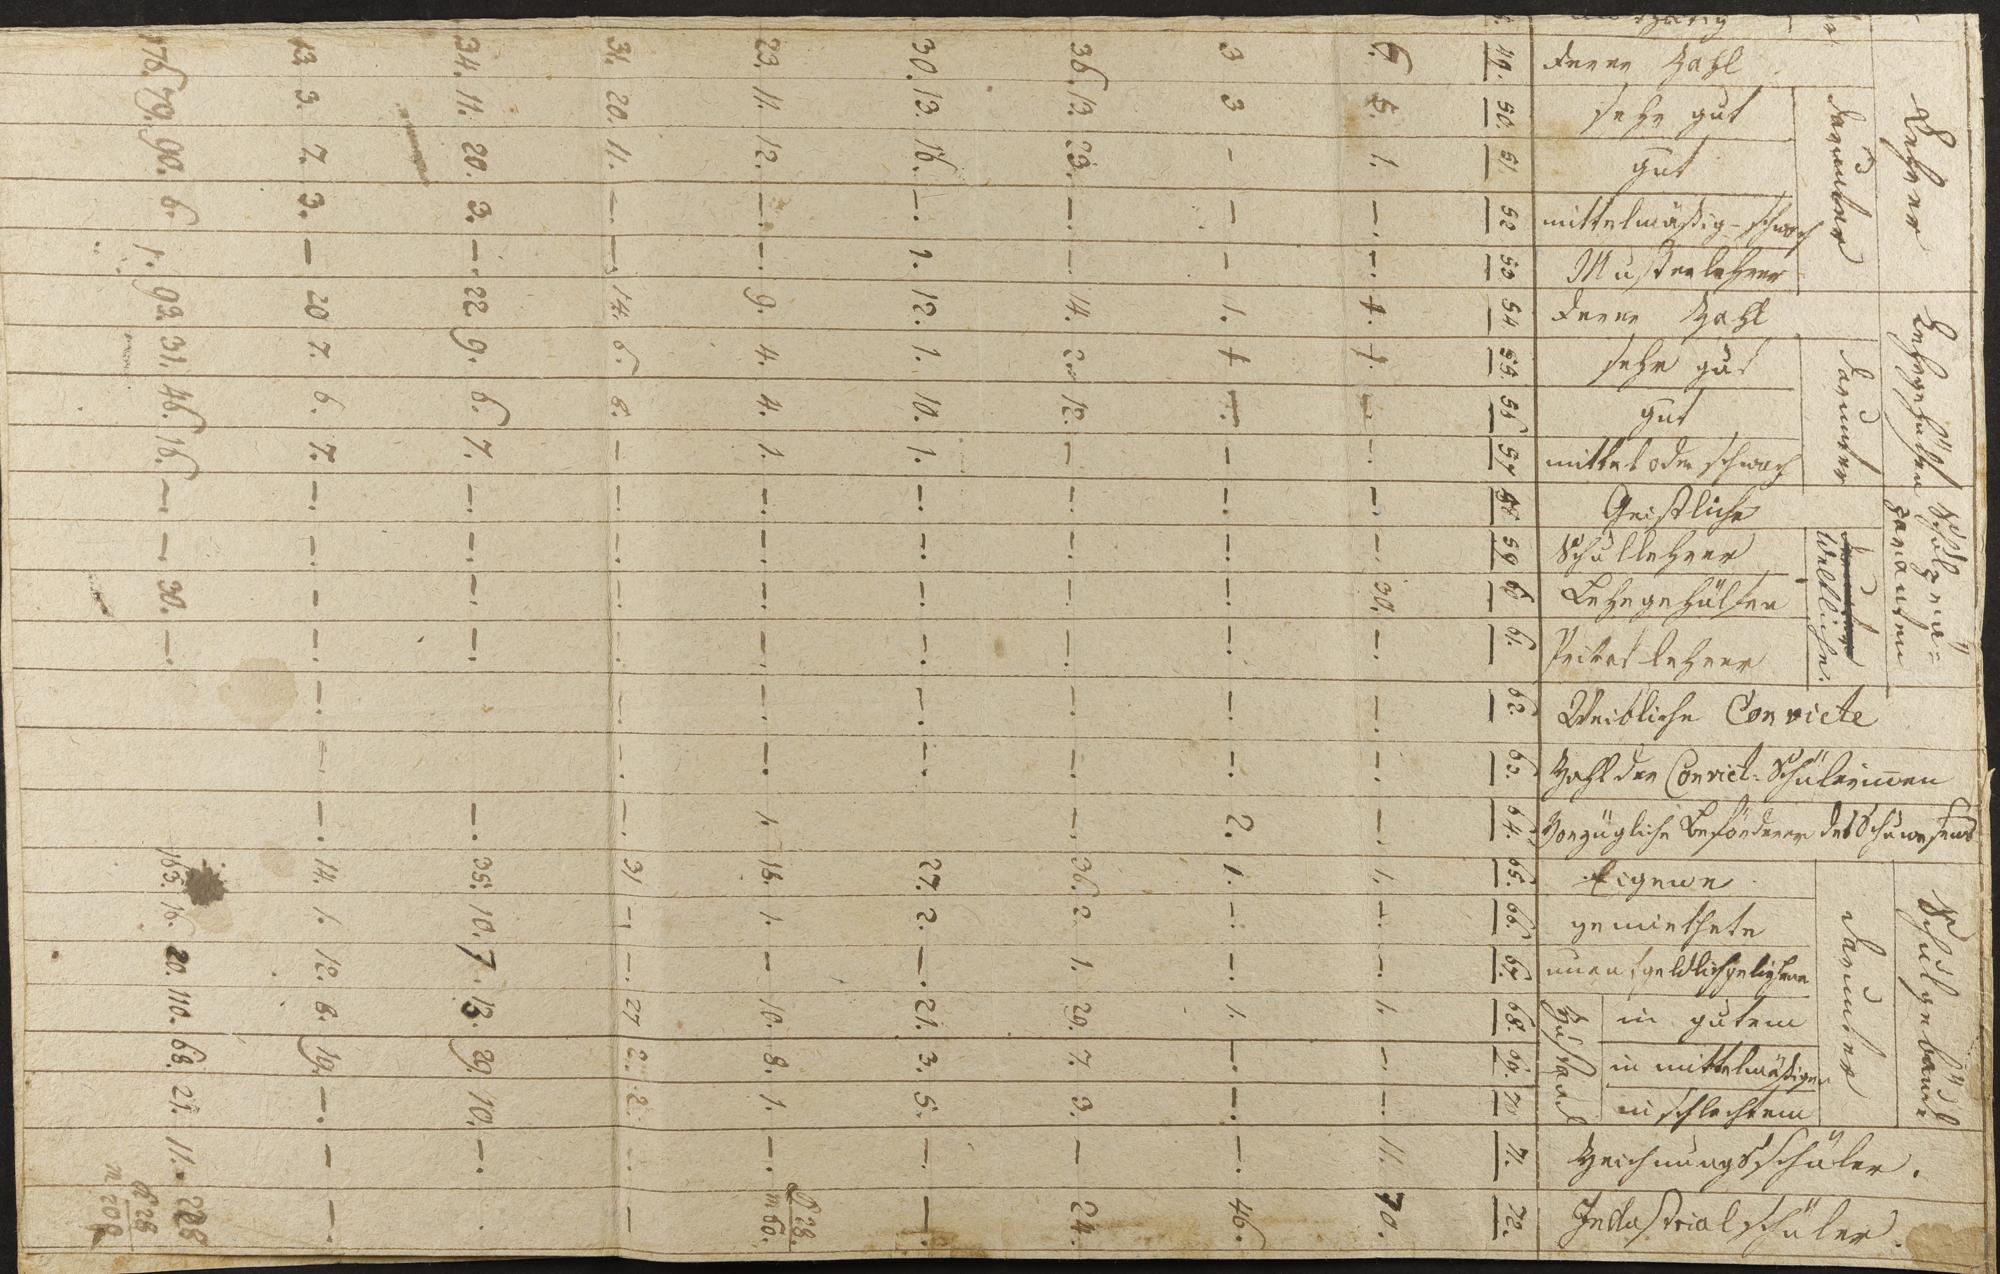 Lehrer
deren Zahl
darunter
sehr gut
gut
mittelmäßig-schwach
Musterlehrer
Lehrgehülfen
deren Zahl
darunter
sehr gut
gut
mittel oder schwach
Schulpräparanten
Geistliche
Weltliche.
Schullehrer
Lehrgehülfen
Privatlehrer
Weibliche Convicte
Zahl der Convict-Schülerinnen
Vorzügliche Beförderer des Schulwesens
Schulgebäude
darunter
Eigene
gemiethete
unentgeldlich geliehene
Zustand
in gutem
in mittelmäßigem
in schlechtem
Zeichnungsschüler.
Industrialschüler.
49. 50. 51. 52 53 54 55. 56 57 58 59 60 61. 62. 63. 64. 65. 66. 67. 68. 69. 70 71. 72.
6. 5. 1. —. —. 1. 1. —. —. —. —. 30. —. —. —. — 1. —. —. 1. — — 11. 70.
3 3 – – – 1. 1 —. — —. —. —. —. —. —. 2. 1. —. —. 1. — —. —. 46.
36. 13. 23. — — 14. 2. 12. — — — — — — —. —. 36. 2. 1. 29. 7. 3. — 24.
30. 13. 16. —. 1. 12. 1. 10. 1. —. —. —. —. —. —. 27. 2. —. 21. 3. 5. —. —.
23. 11. 12. —. —. 9. 4. 4. 1. —. —. —. —. —. —. 1. 18. 1. – 10. 8. 1. —. 28. m 60.
31. 20. 11. — — 14. 6. 8. – –. –. –. –. –. –. –. 31 – –. 27 2. 2. –. —
34. 11. 20. 3. —. 22. 9. 6. 7. —. —. —. —. —. 35. 10. 7. 13. 29. 10. —.
13. 3. 7. 3. — 20 7. 6. 7. —. —. — —. —. — —. 14. 1. 12. 8. 19. —. — —.
176. 79. 90. 6. 1. 93. 31. 46. 16. — — 30. —. 163. 16. 20. 110. 68. 21. 11. 288
28
m 208